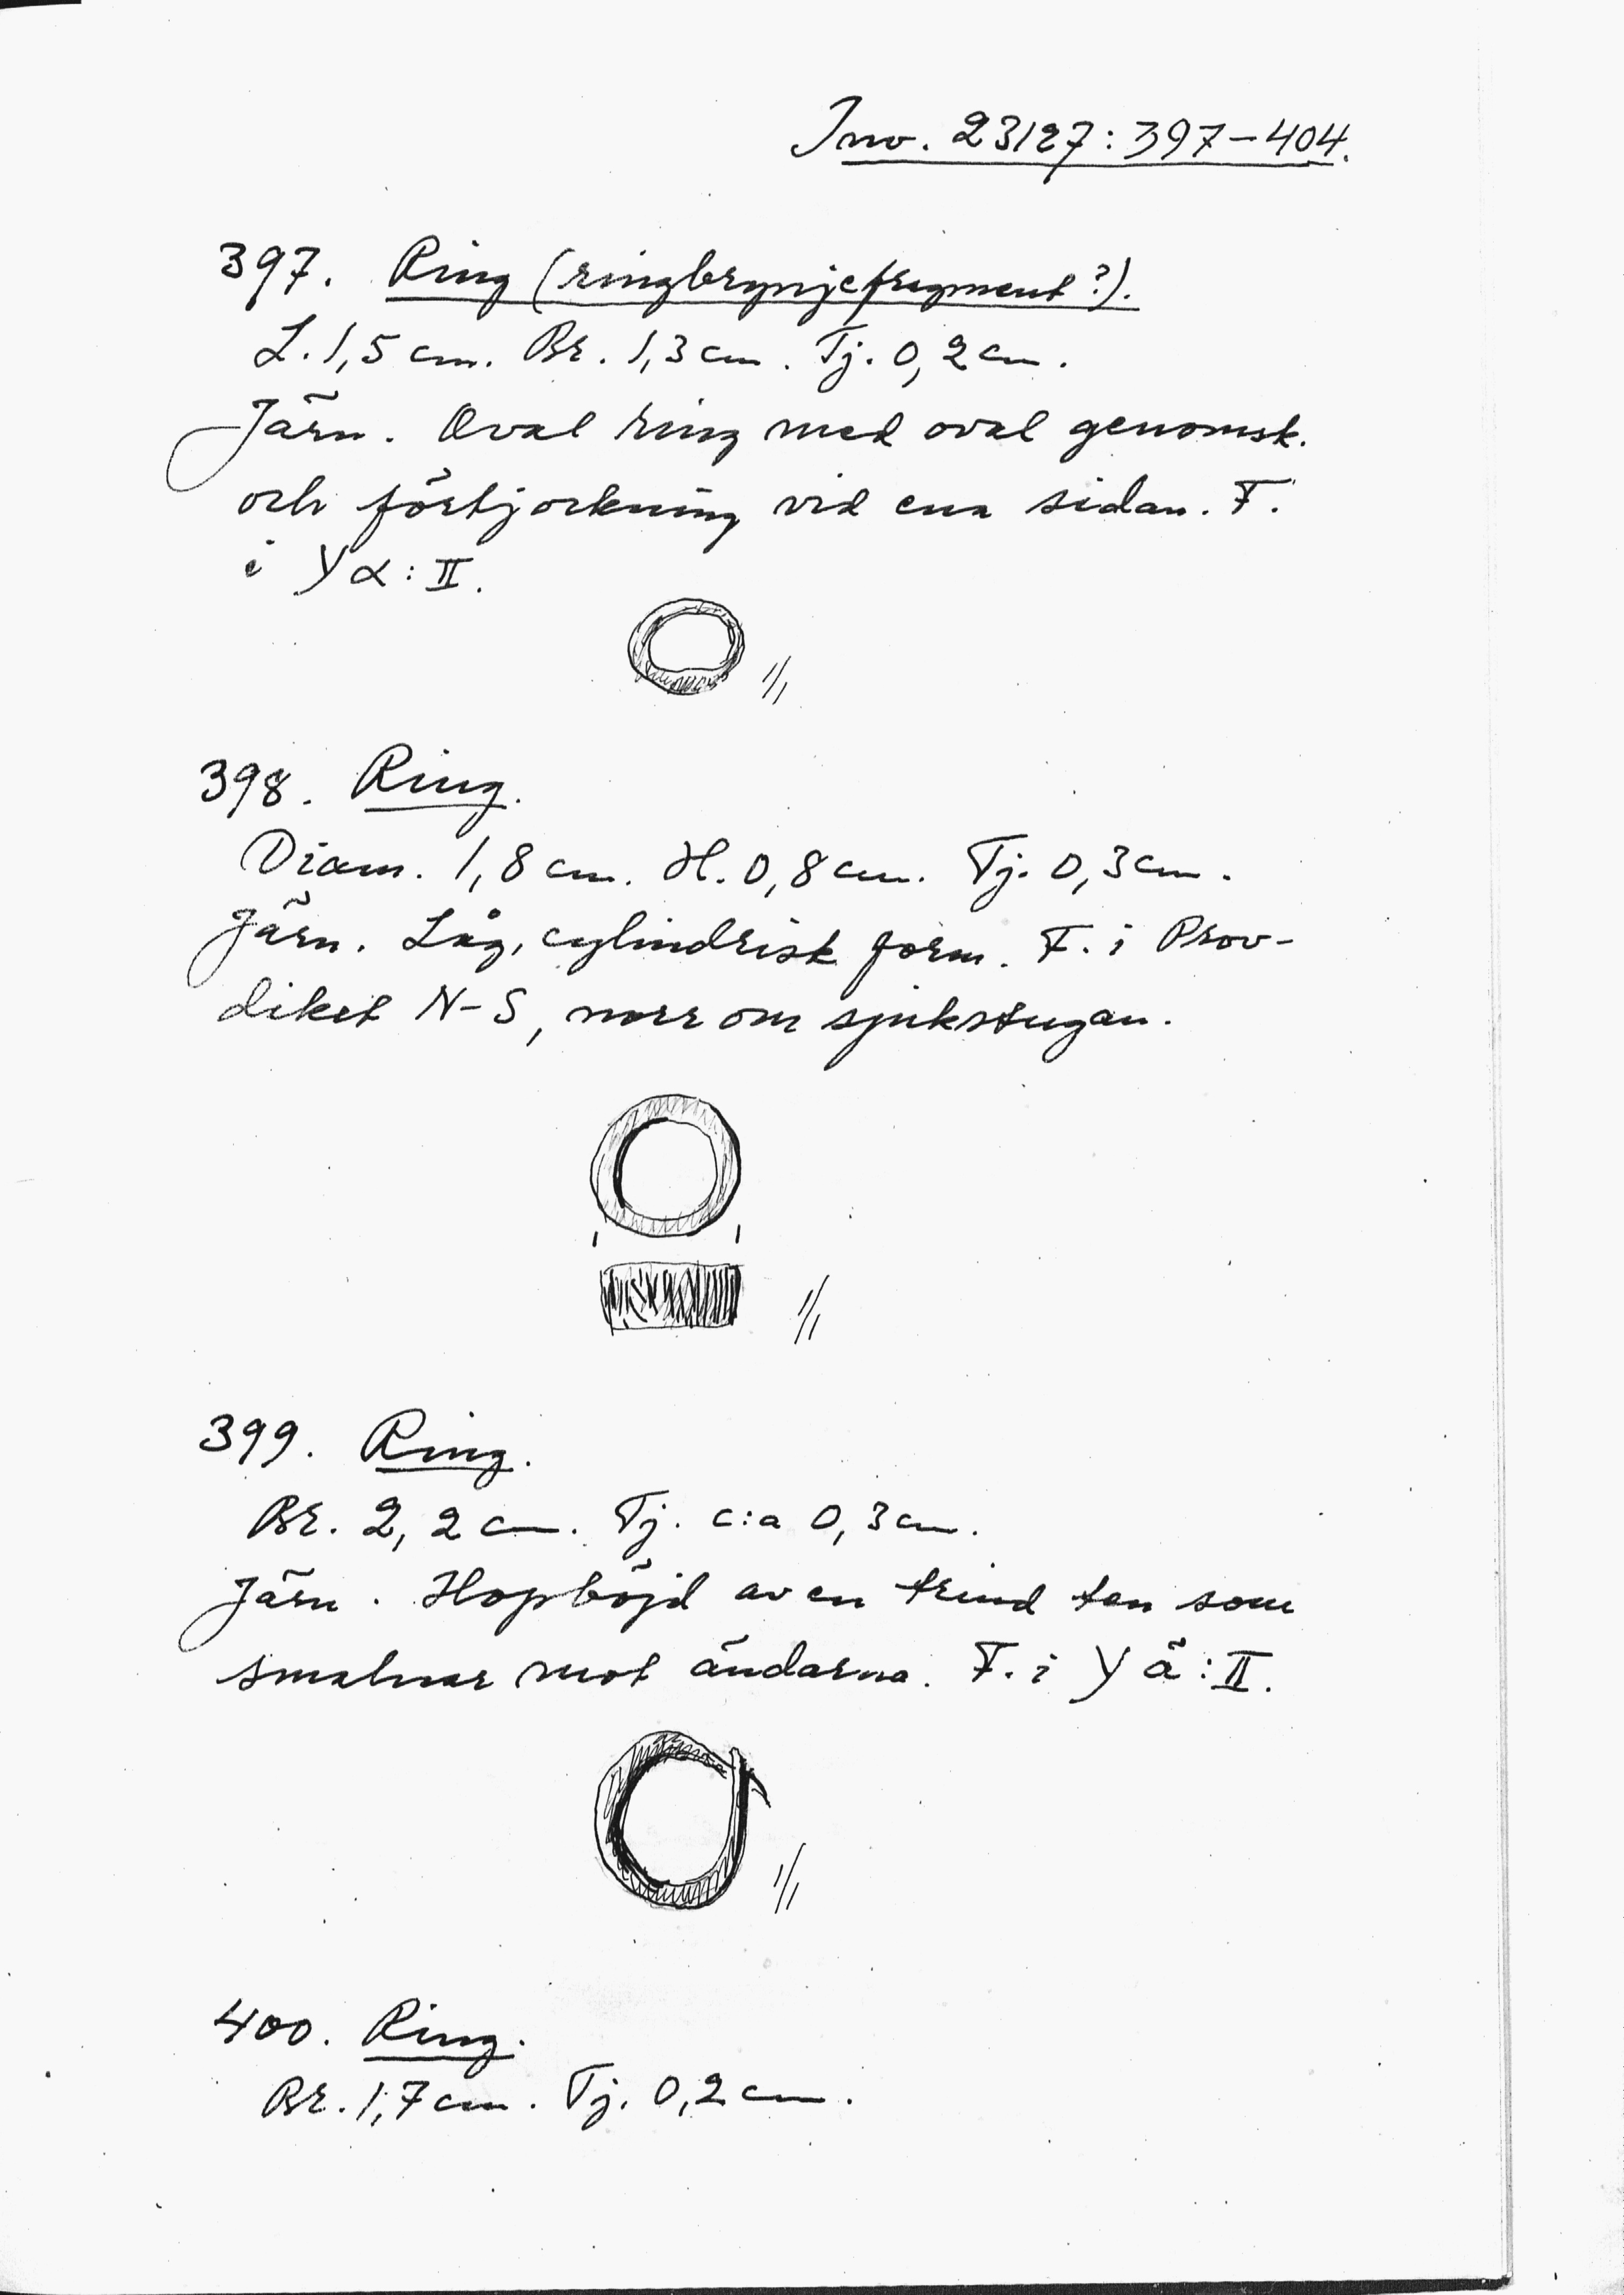 Inv. 23127:397-404.
397. Ring (ringbrynjefragment?).
L. 1,5 cm. Br. 1,3 cm. Tj. 0,2 cm.
Järn. Oval ring med oval genomsk.
och förtjockning vid ena sidan. F.
i Y α: II.
1/1
398. Ring.
Diam. 1,8 cm. H. 0,8 cm. Tj. 0,3 cm.
Järn. Låg, cylindrisk form. F. i Prov-
diket N-S, norr om sjukstugan.
1/1
399. Ring.
Br. 2,2 cm. Tj. c:a 0,3 cm.
Järn. Hopböjd av en trind ten som
smalnar mot ändarna. F. i Y ä: II.
1/1
400. Ring.
Br. 1,7 cm. Tj. 0,2 cm.